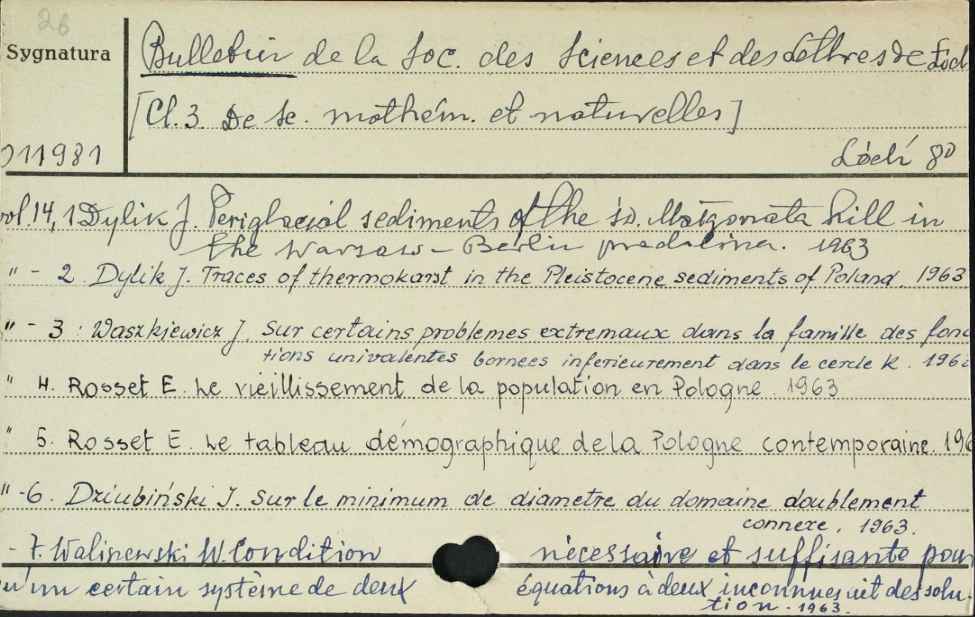 26
Sygnatura
Bulletin de la Soc. des Sciences et des Lettres de Łód
[Cl. 3. De sc. mathém. et naturelles]
011981
Łódź 80
vol. 14, 1 Dylik J. Periglacial sediments of the św. Małgorzata hill in
the Warsaw - Berlin pradolina. 1963
" - 2. Dylik J. Traces of thermokarst in the Pleistocene sediments of Poland. 1963
" - 3: Waszkiewicz J. Sur certains problemes extremaux dans la famille des fonc
tions univalentes bornees inferieurement dans le cercle K. 196
" 4. Rosset E. Le vieillissement de la population en Pologne. 1963
" 5. Rosset E. Le tableau démographique de la Pologne contemporaine. 196
" - 6. Dziubiński I. Sur le minimum de diametre du domaine doublement
connexe. 1963.
- 7. Waliszewski W. Condition nécessaire et suffisante pour
qu'un certain système de deux équations à deux inconnues ait des solu-
tion. 1963.